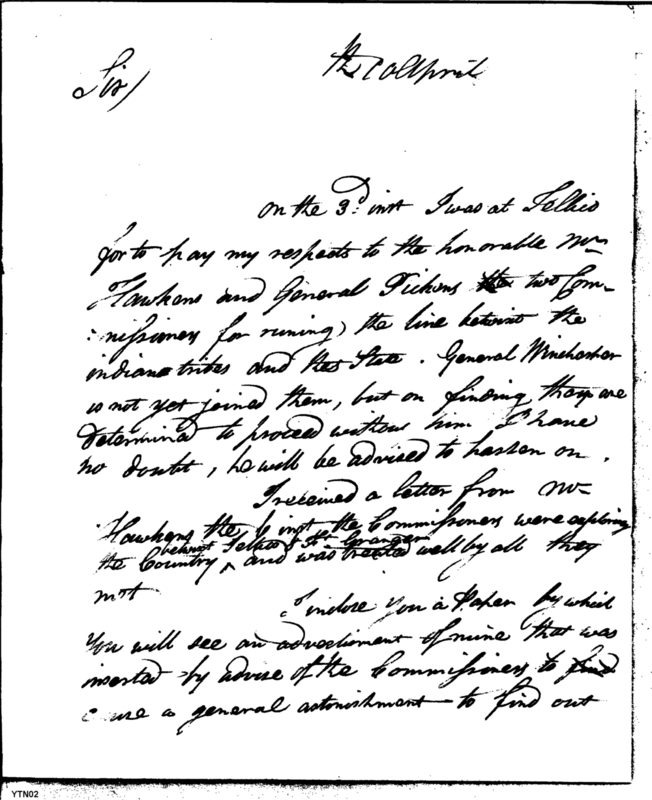 Sir)
the 10 April
on the 3d. inst I was at Tellico
for to pay my respects to the honorable Mr
Hawkens and General Pickens the two Com-
:missioners for runing the line betwixt the
indians tribes and this State. General Winchester
is not yet joined them, but on finding they are
determined to proceed without him I have
no doubt, he will be advised to hasten on.
I received a letter from Mr
Hawkens the 6 inst the Commissioners were exploring
betwixt Tellico & Ft. Granger
the Country, ^ and was treated well by all they
met
I inclose you a Paper by which
You will see an advertisment of mine that was
inserted by advise of the Commissioners to find
cause a general astonishment to find out
YTN02